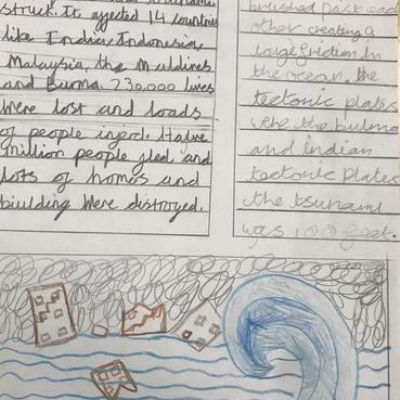 struck. It affected 14 countries
like India, Indonesia,
Malaysia, the Muldines
and Burma. 230,000 lives
Were lost and loads
of people injord. Halve
million people fled and
lots of homes and
biulding Were distroyed.
brushed past each
other creating a
large fridian in
the ocean. the
tectonic plates
were the burma
and Indian
tectonic plates
the tsunami
was 100 feet.